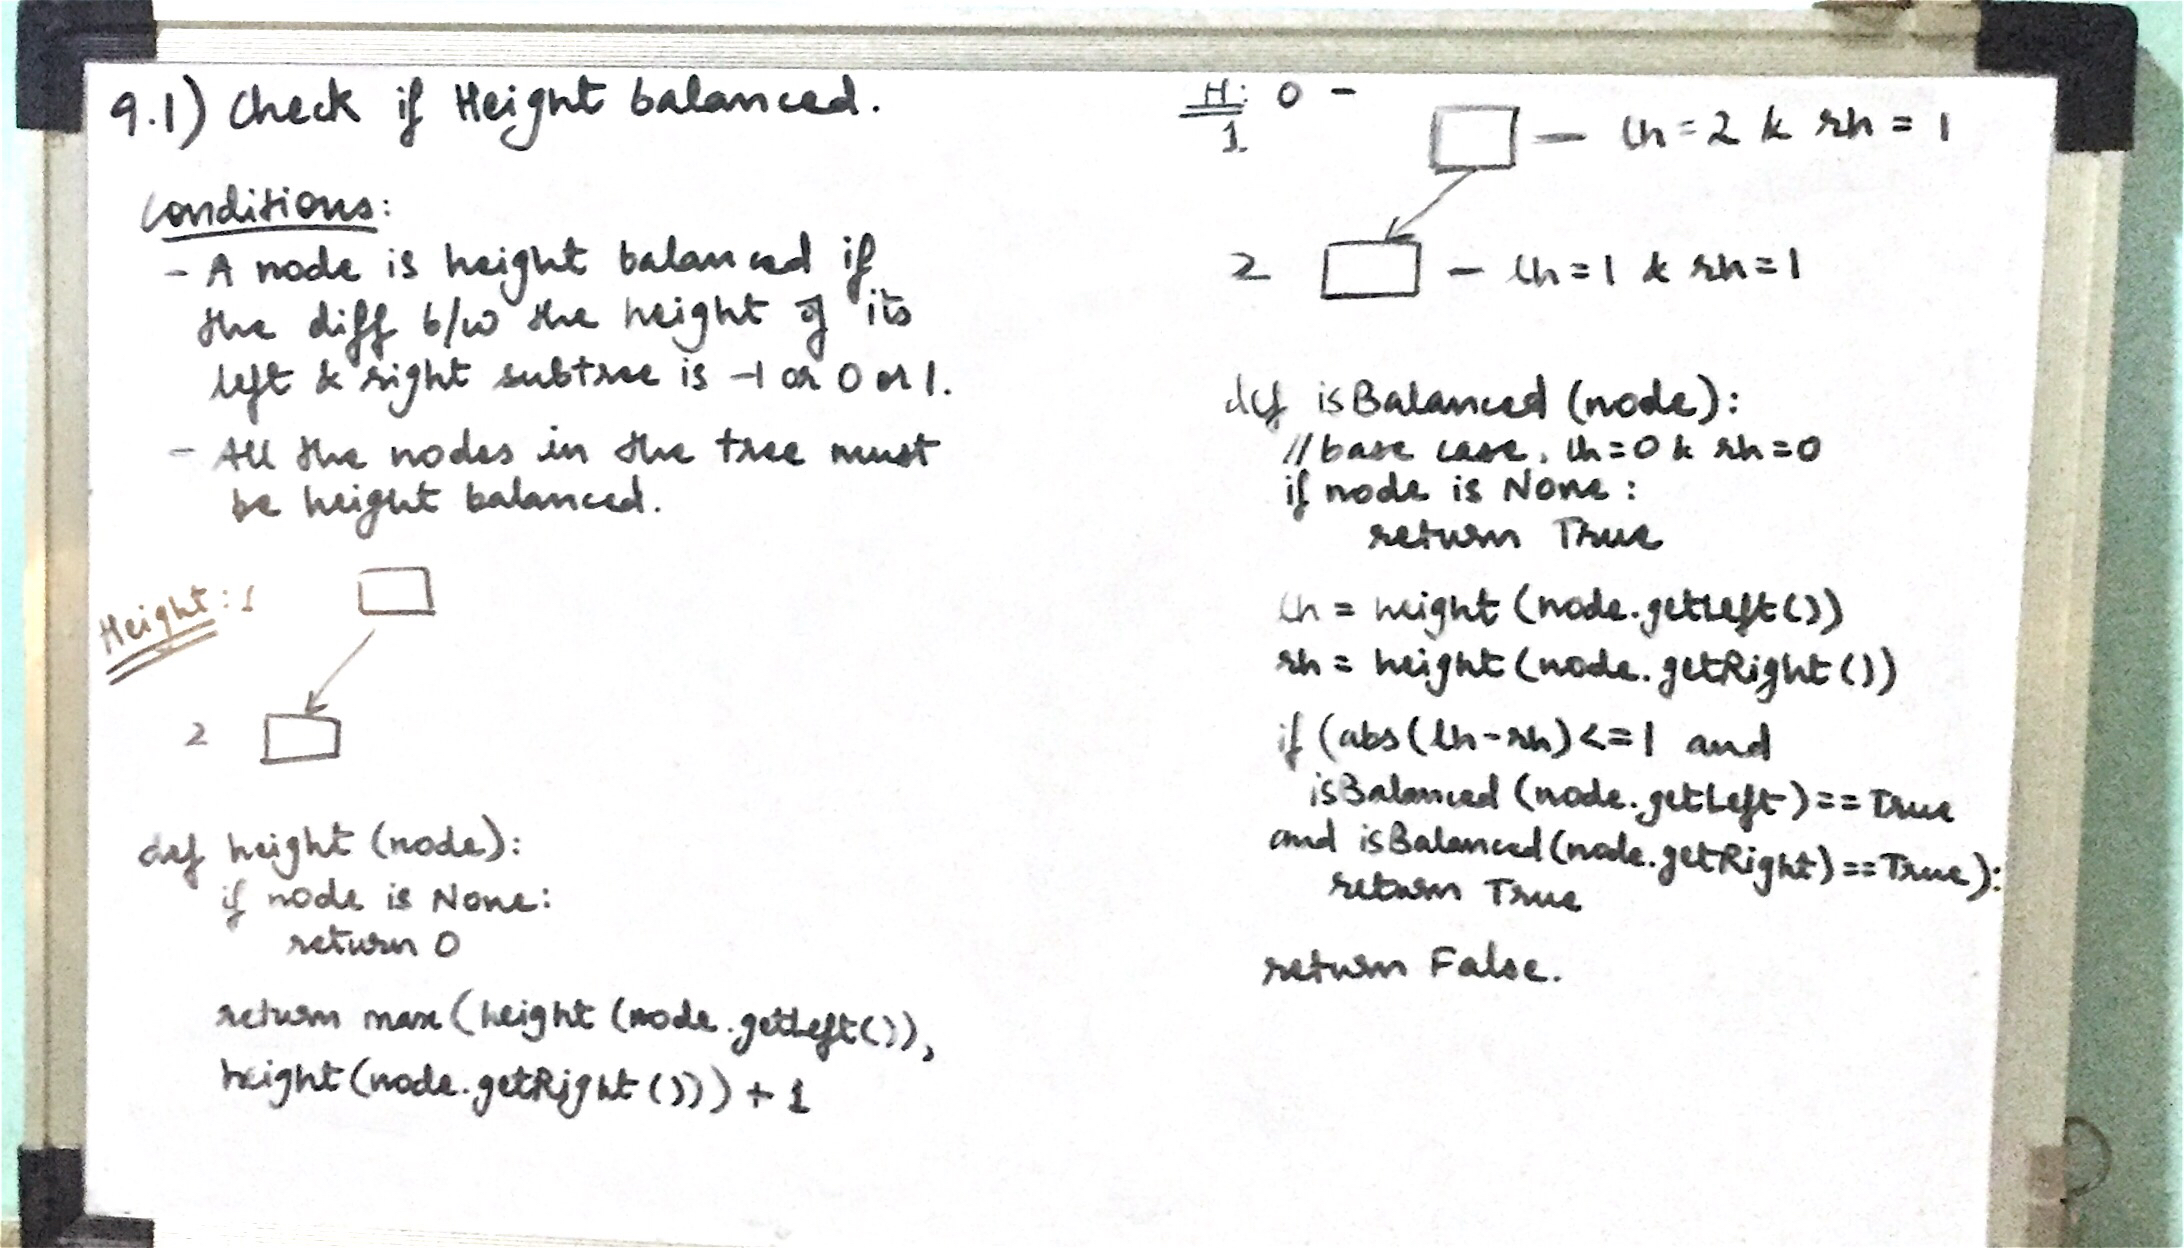 9.1) Check if Height balanced.
Conditions:
- A node is height balanced if
the diff b/w the height of its
left & right subtree is -1 or 0 or 1.
- All the nodes in the tree must
be height balanced.
Height: 1
2
def height (node):
if node is None:
return 0
return max (height (node.getLeft()),
height (node.getRight())) + 1
H: 0 -
1 — lh = 2 & rh = 1
2 — lh = 1 & rh = 1
def isBalanced (node):
// base case, lh = 0 & rh = 0
if node is None :
return True
lh = height (node.getLeft())
rh = height (node.getRight())
if (abs (lh - rh) <= 1 and
isBalanced (node.getLeft) == True
and isBalanced (node.getRight) == True):
return True
return False.